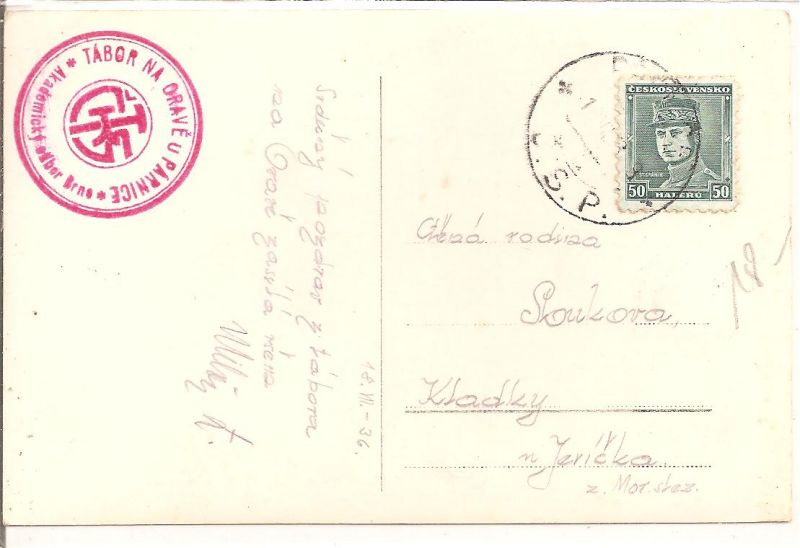 * TÁBOR NA ORAVĚ U PÁRNICE *
Akademický odbor Brno
Srdečný pozdrav z tábora
na Oravě zasílá všem
18.VII.-36.
ČESKOSLOVENSKO
ŠTEFÁNIK
50 HALÉŘŮ 50
Č.S.P.
Ctěná rodina
Kladky
u Jevíčka
z. Mor.
18